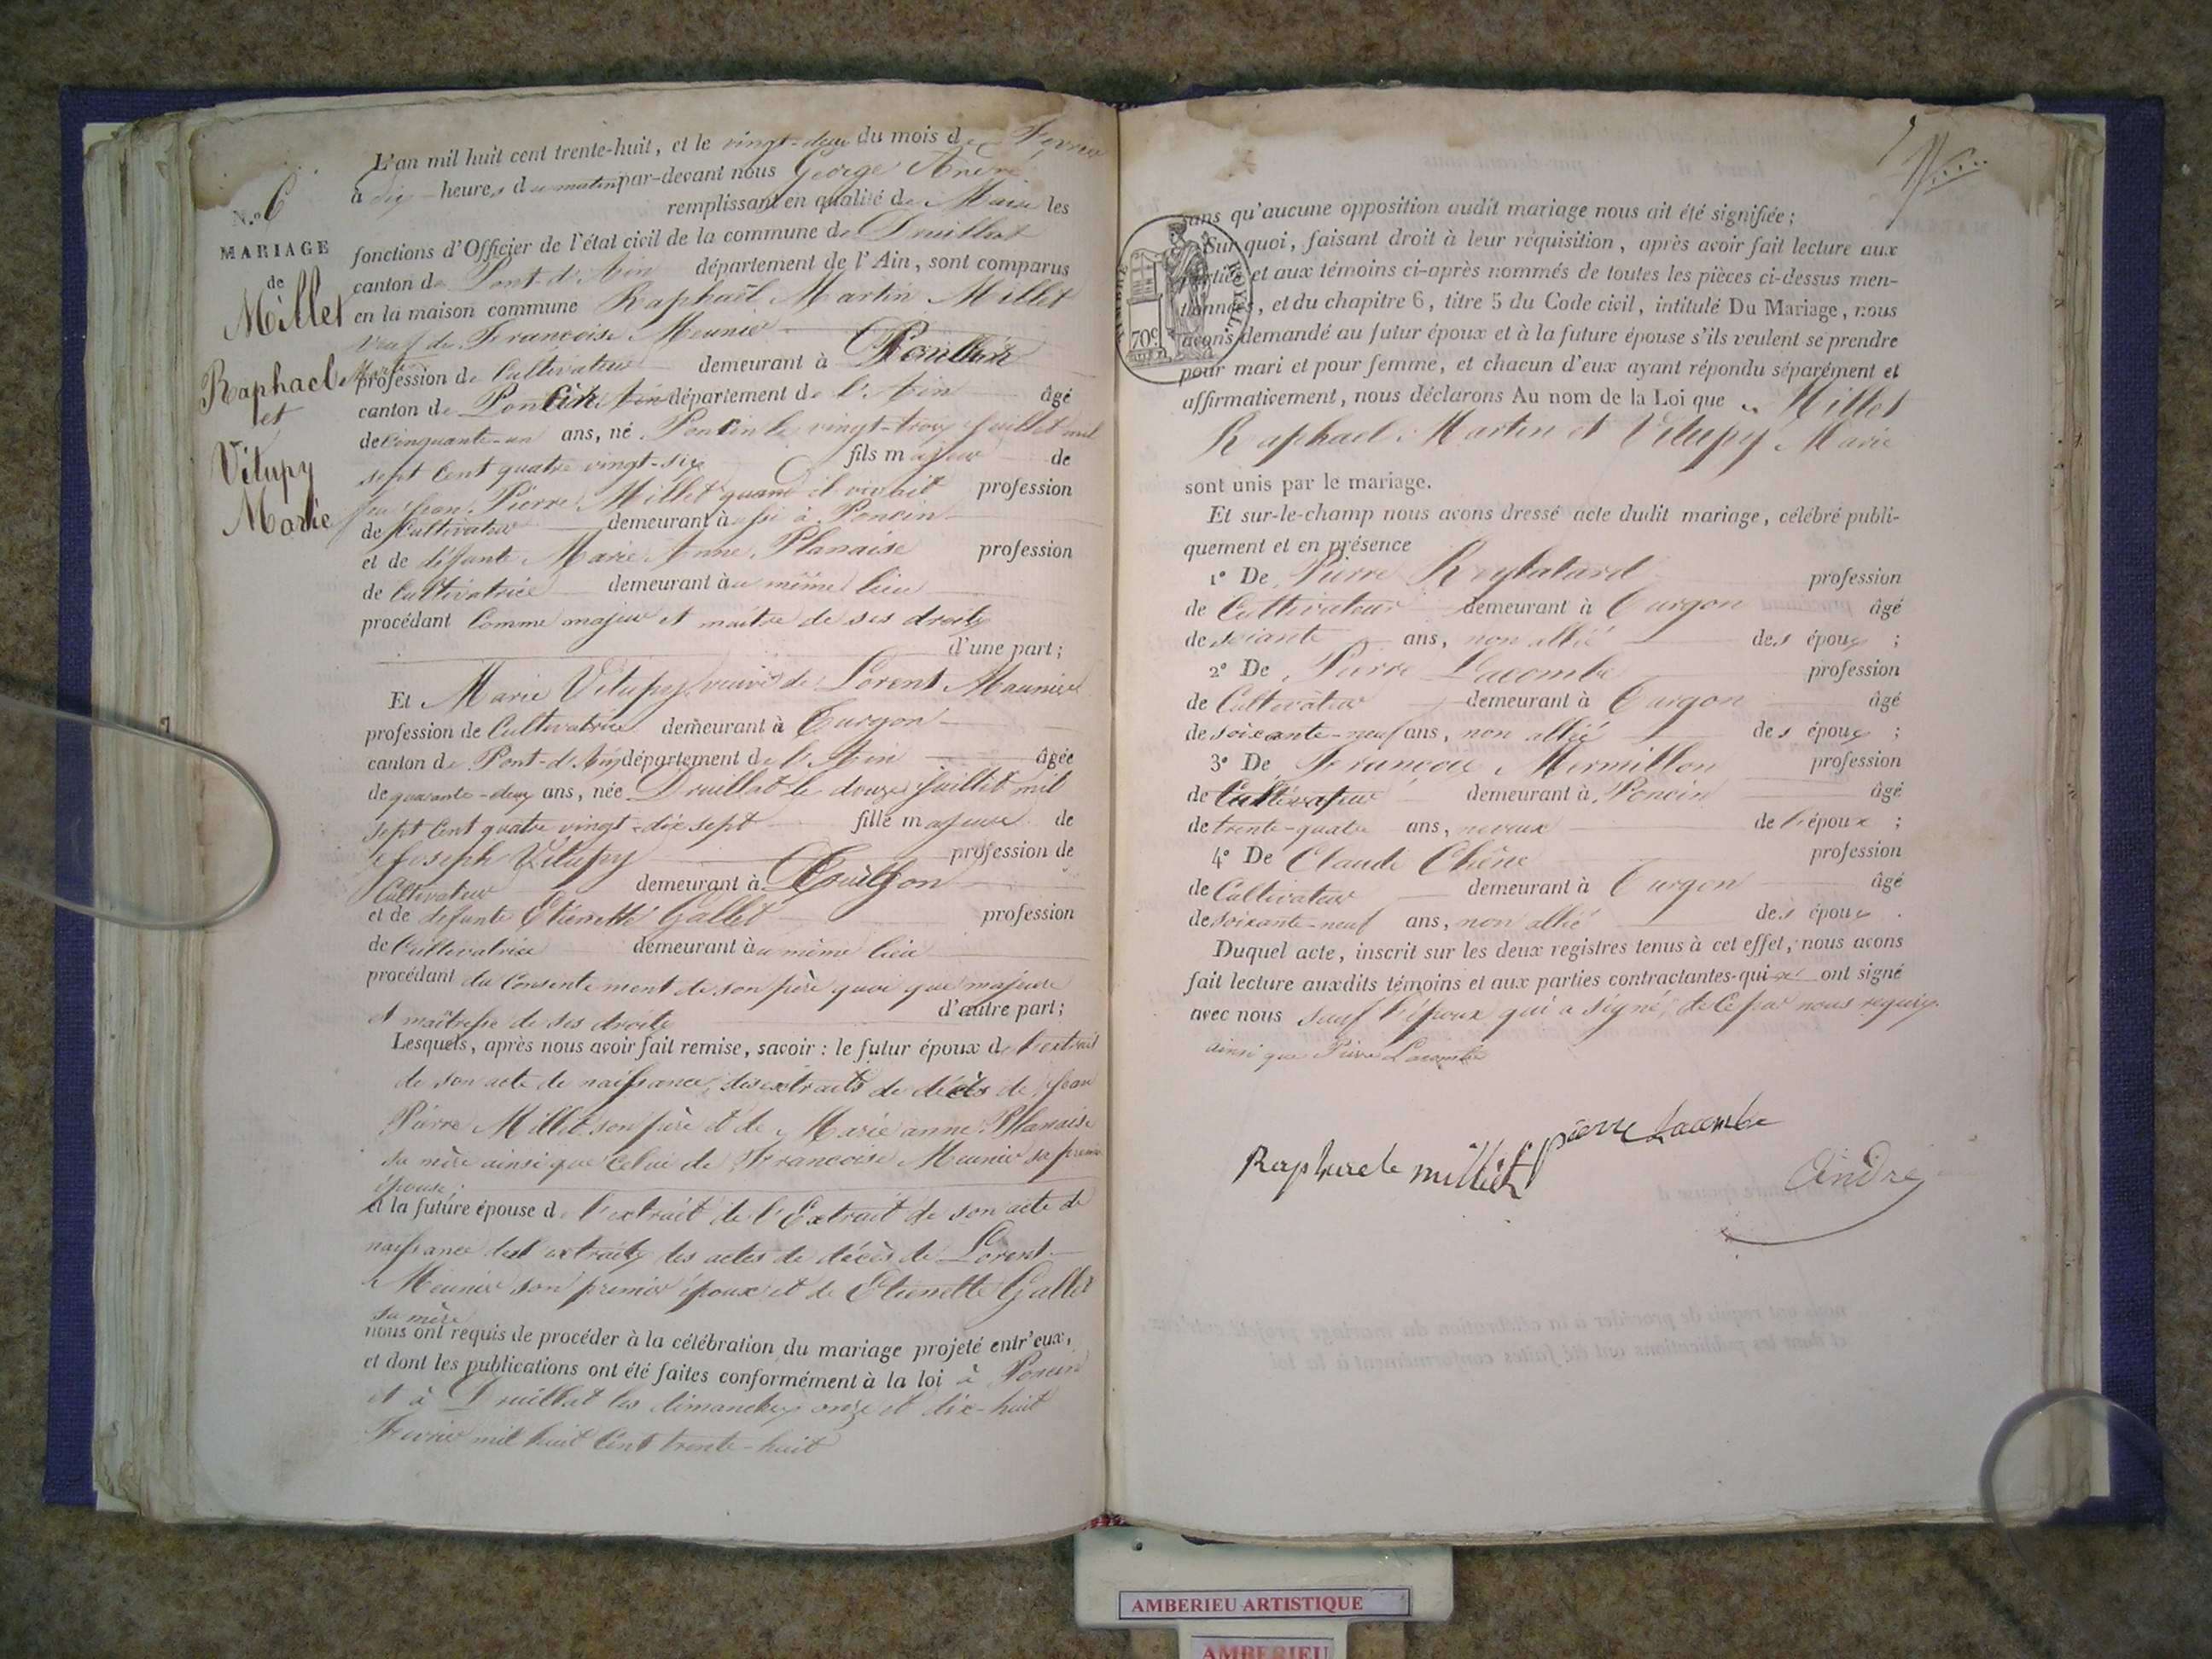 N.º 6
MARIAGE
de
Millet
Raphael Martin
et
Vitupy
Marie
L'an mil huit cent trente-huit, et le vingt-deux du mois de Fevrier
à dix heures du matin par-devant nous George André
remplissant en qualité de Maire les
fonctions d'Officier de l'état civil de la commune de Druillat
canton de Pont-d'Ain département de l'Ain, sont comparus
en la maison commune Raphaël Martin Millet
veuf de Francoise Meunier
profession de Cultivateur demeurant à
canton de Poncin département de l'Ain âgé
de cinquante-un ans, né Poncin le vingt-trois Juillet mil
sept cent quatre vingt-six fils majeur de
feu Jean Pierre Millet quand il vivait profession
de Cultivateur demeurant aussi à Poncin
et de défunte Marie Anne Planaise profession
de Cultivatrice demeurant au même lieu
procédant Comme majeur et maître de ses droits
d'une part;
Et Marie Vitupy veuve de Lorent Meunier
profession de Cultivatrice demeurant à Turgon
canton de Pont-d'Ain département de l'Ain âgée
de quarante-deux ans, née Druillat le douze Juillet mil
sept cent quatre vingt-dix sept fille majeure de
Joseph Vitupy profession de
Cultivateur demeurant à Turgon
et de défunte Etienette Gallet profession
de Cultivatrice demeurant au même lieu
procédant du consentement de son père quoi que majeure
et maîtresse de ses droits d'autre part;
Lesquels, après nous avoir fait remise, savoir: le futur époux de l'extrait
de son acte de naissance, des extraits de décès de Jean
Pierre Millet son père et de Marie anne Planaise
sa mère ainsi que celui de Francoise Meunier sa premiere
épouse;
et la future épouse de l'extrait de l'Extrait de son acte de
naissance des extraits des actes de décès de Lorent
Meunier son premier époux et de Etienette Gallet
sa mère
nous ont requis de procéder à la célébration du mariage projeté entr'eux,
et dont les publications ont été faites conformément à la loi à Poncin
et à Druillat les dimanches onze et dix-huit
Fevrier mil huit cent trente-huit
sans qu'aucune opposition audit mariage nous ait été signifiée;
Sur quoi, faisant droit à leur réquisition, après avoir fait lecture aux
parties et aux témoins ci-après nommés de toutes les pièces ci-dessus men-
tionnées, et du chapitre 6, titre 5 du Code civil, intitulé Du Mariage, nous
avons demandé au futur époux et à la future épouse s'ils veulent se prendre
pour mari et pour femme, et chacun d'eux ayant répondu séparément et
affirmativement, nous déclarons Au nom de la Loi que Millet
Raphael Martin et Vitupy Marie
sont unis par le mariage.
Et sur-le-champ nous avons dressé acte dudit mariage, célébré publi-
quement et en présence
1º De Pierre profession
de Cultivateur demeurant à Turgon âgé
de soixante ans, non allié des époux;
2º De Pierre Lacombe profession
de Cultivateur demeurant à Turgon âgé
de soixante-neuf ans, non allié des époux;
3º De Francois Mermillon profession
de Cultivateur demeurant à Poncin âgé
de trente-quatre ans, neveux de l'époux;
4º De Claude Chêne profession
de Cultivateur demeurant à Turgon âgé
de soixante-neuf ans, non allié des époux.
Duquel acte, inscrit sur les deux registres tenus à cet effet, nous avons
fait lecture auxdits témoins et aux parties contractantes qui ont signé
avec nous sauf l'époux qui a signé, de ce par nous requis
ainsi que Pierre Lacombe
TIMBRE ROYAL
70c
Raphaele millet
pierre Lacombe
André
AMBERIEU ARTISTIQUE
AMBERIEU